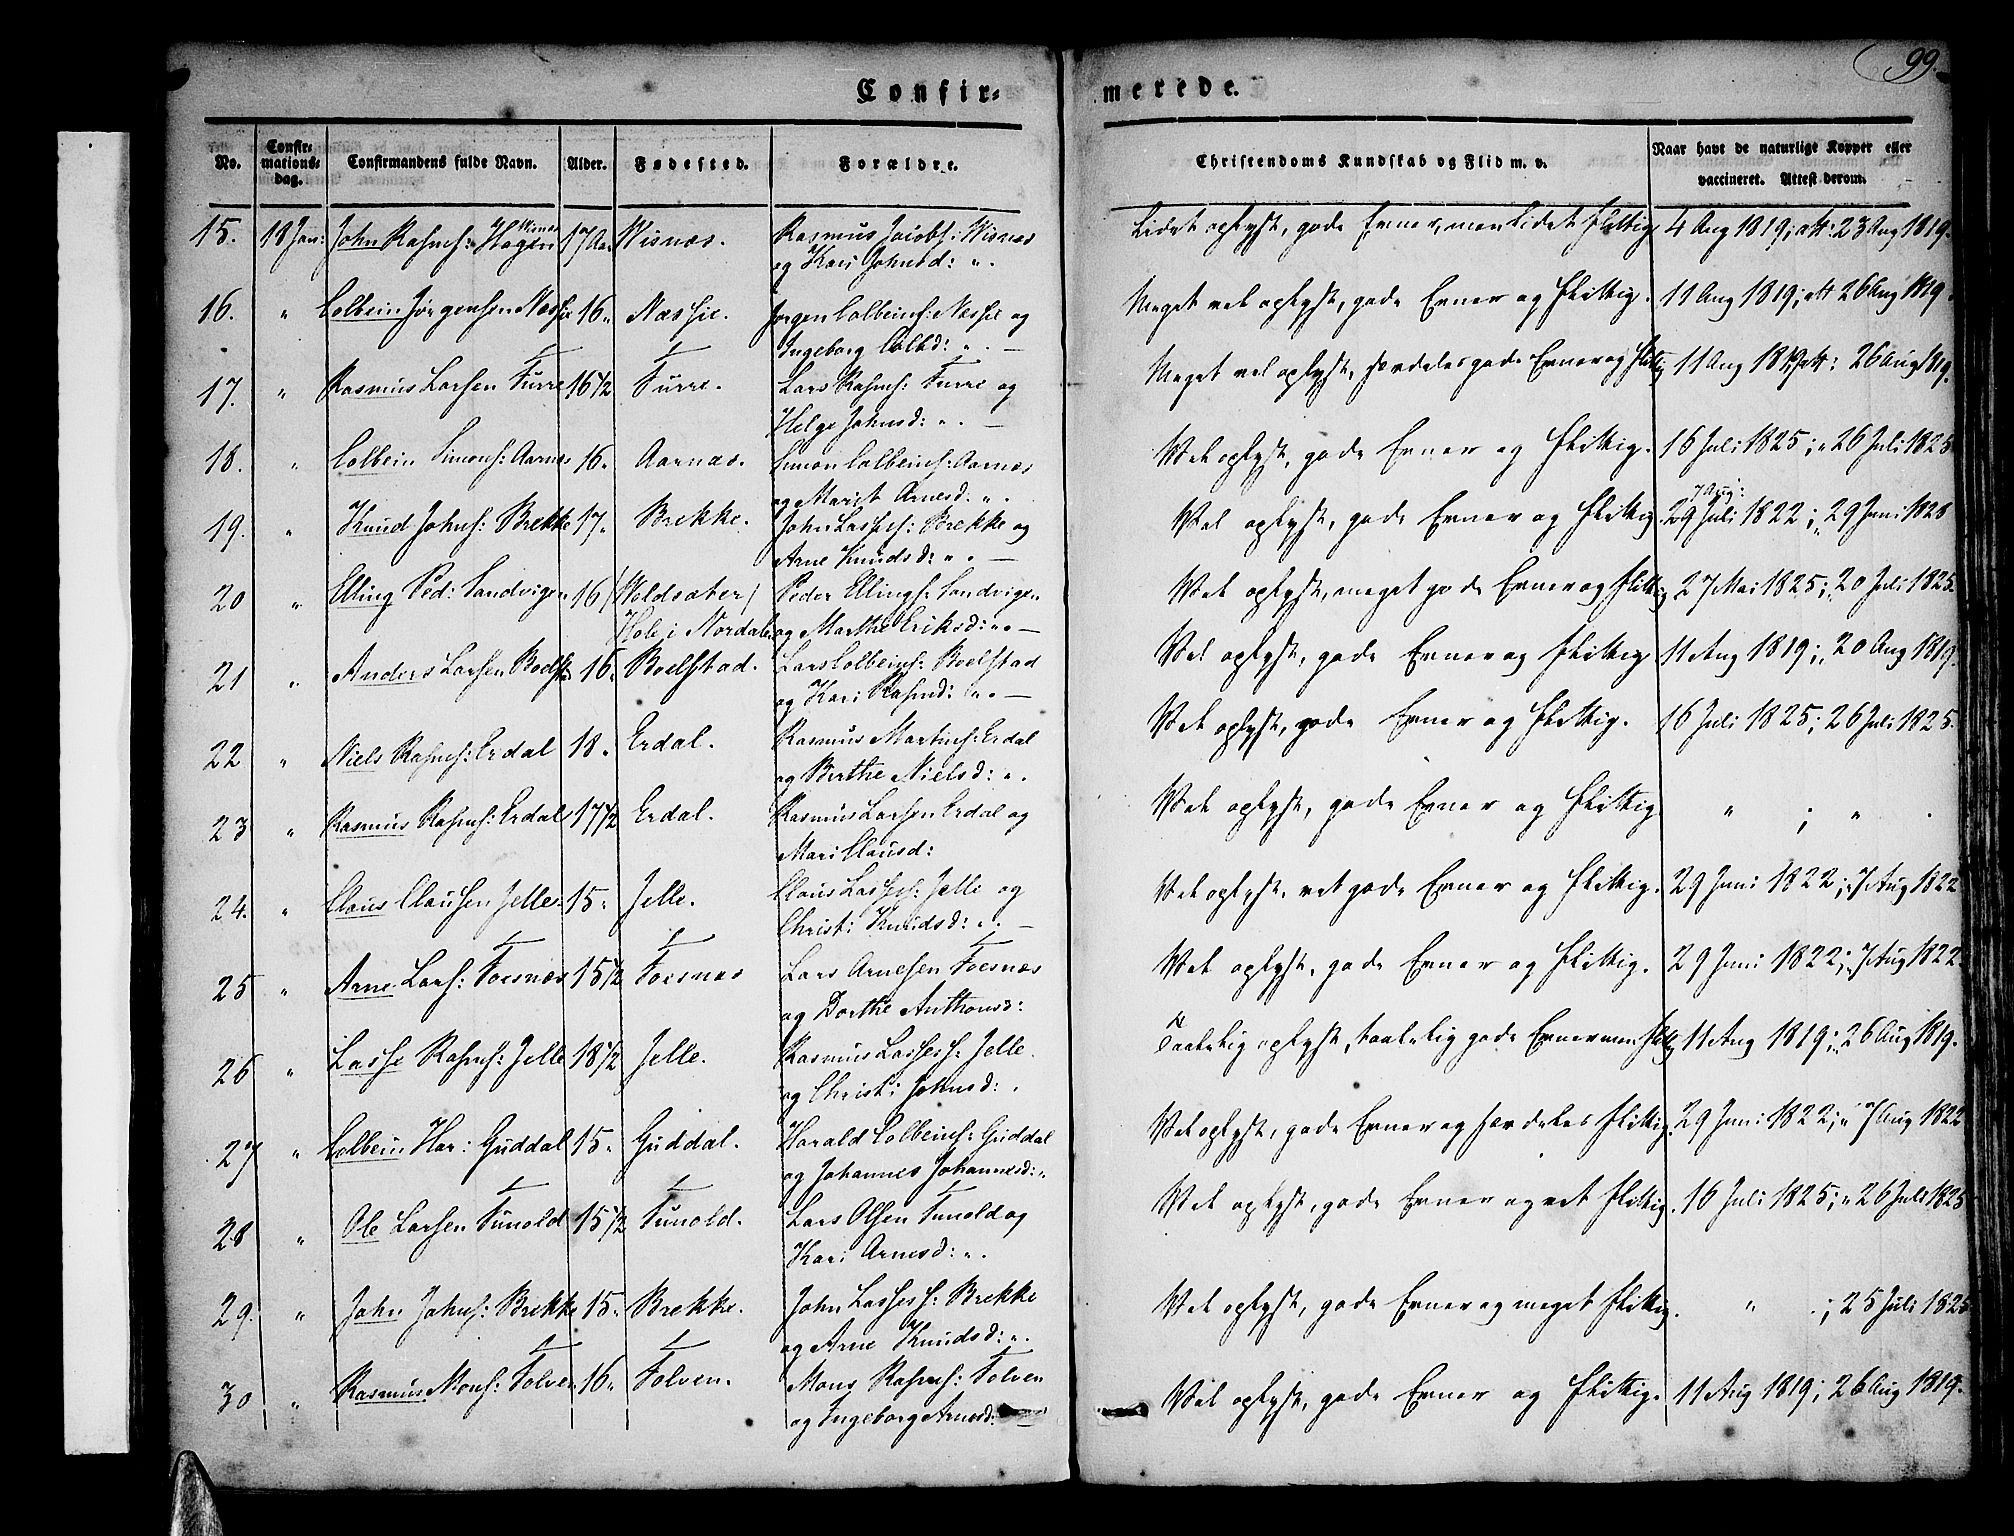 99.
Confirmerede.
No.
Confirmationsdag.
Confirmandens fulde Navn.
Alder.
Fødested.
Forældre.
Christendoms Kundskab og Flid m. v.
Naar havt de naturlige Kopper eller vaccineret. Attest derom.
15. 18 Jan: John Rasm: Hagen Wisnæs 17 Aar Wisnæs. Rasmus Jacobs: Wisnæs Lidet oplyst, gode Evner, men lidet flittig 4 Aug 1819; att: 23 Aug 1819.
og Kari Johnsd: „.
16. „ Colbein Jørgensen Næssie 16„ Næssie. Jørgen Colbeins: Næssie og Meget vel oplyst, gode Evner og flittig. 11 Aug 1819; att 26 Aug 1819.
Ingeborg Colbd: „. —
17. „ Rasmus Larsen Furre 16 1/2 Furre. Lars Rasms: Furre og Meget vel oplyst, særdeles gode Evner og flittig 11 Aug 1819; att: 26 Aug 1819.
Helge Johnsd: „. —
18. „ Colbein Simons: Aarnes 16. Aarnæs. Simon Colbeins: Aarnæs Vel oplyst, gode Evner og flittig. 16 Juli 1825; „ 26 Juli 1825
og Marit Arnesd: „.
19. „ Knud Johns: Brekke 17„ Brekke. John Lasses: Brekke og Vel oplyst, gode Evner og flittig. 29 Juli 1822; „ 29 Juni 1828
7 Aug:
Arne Knudsd: „. —
20 „ Elling Ped: Sandvigen 16 (Woldsæter) Peder Ellings: Sandvigen Vel oplyst, meget gode Evner og flittig 27 Mai 1825; „ 20 Juli 1825.
Hole i Nordalen og Marthe Eriksd: „. —
21 „ Anders Larsen Boelst 16„ Boelstad. Lars Colbeins: Boelstad Vel oplyst, gode Evner og flittig 11 Aug 1819; „ 20 Aug 1819.
og Kari Rasmd: „. —
22 „ Niels Rasms: Erdal 18. Erdal. Rasmus Martins: Erdal Vel oplyst, gode Evner og flittig. 16 Juli 1825; 26 Juli 1825.
og Berthe Nielsd: „.
23 „ Rasmus Rasms: Erdal 17 1/2 Erdal. Rasmus Larsen Erdal og Vel oplyst, gode Evner og flittig „ ; „ .
Mari Clausd:
24. „ Claus Clausen Jelle 15„ Jelle. Claus Lasses: Jelle og Vel oplyst, ret gode Evner og flittig. 29 Juni 1822; „ 7 Aug 1822
Christi Knudsd: „. —
25 „ Arne Lars: Foesnæs 15 1/2 Foesnæs Lars Arnesen Foesnæs Vel oplyst, gode Evner og flittig. 29 Juni 1822; „ 7 Aug 1822.
og Dorthe Anthonsd:
26 „ Lasse Rasms: Jelle 18 1/2 Jelle. Rasmus Lasses: Jelle. Taalelig oplyst, taalelig gode Evner men flittig 11 Aug 1819; „ 26 Aug 1819.
og Christi Johnsd: „.
27 „ Colbein Har: Guddal 15„ Guddal. Harald Colbeins: Guddal Vel oplyst, gode Evner og særdeles flittig. 29 Juni 1822; „ 7 Aug 1822
og Johannes Johannesd: „
28 „ Ole Larsen Tunold 15 1/2 Tunold. Lars Olsen Tunold og Vel oplyst, gode Evner og ret flittig. 16 Juli 1825; „ 26 Juli 1825
Kari Arnesd: „.
29. „ John Johns: Brekke 15. Brekke. John Lassess: Brekke Vel oplyst, gode Evner og meget flittig. „ . ; 25 Juli 1825
og Arne Knudsd: „.
30 „ Rasmus Mons: Folven 16„ Folven. Mons Rasms: Folven Vel oplyst, gode Evner og flittig. 11 Aug 1819; 26 Aug 1819.
og Ingeborg Arnesd: —